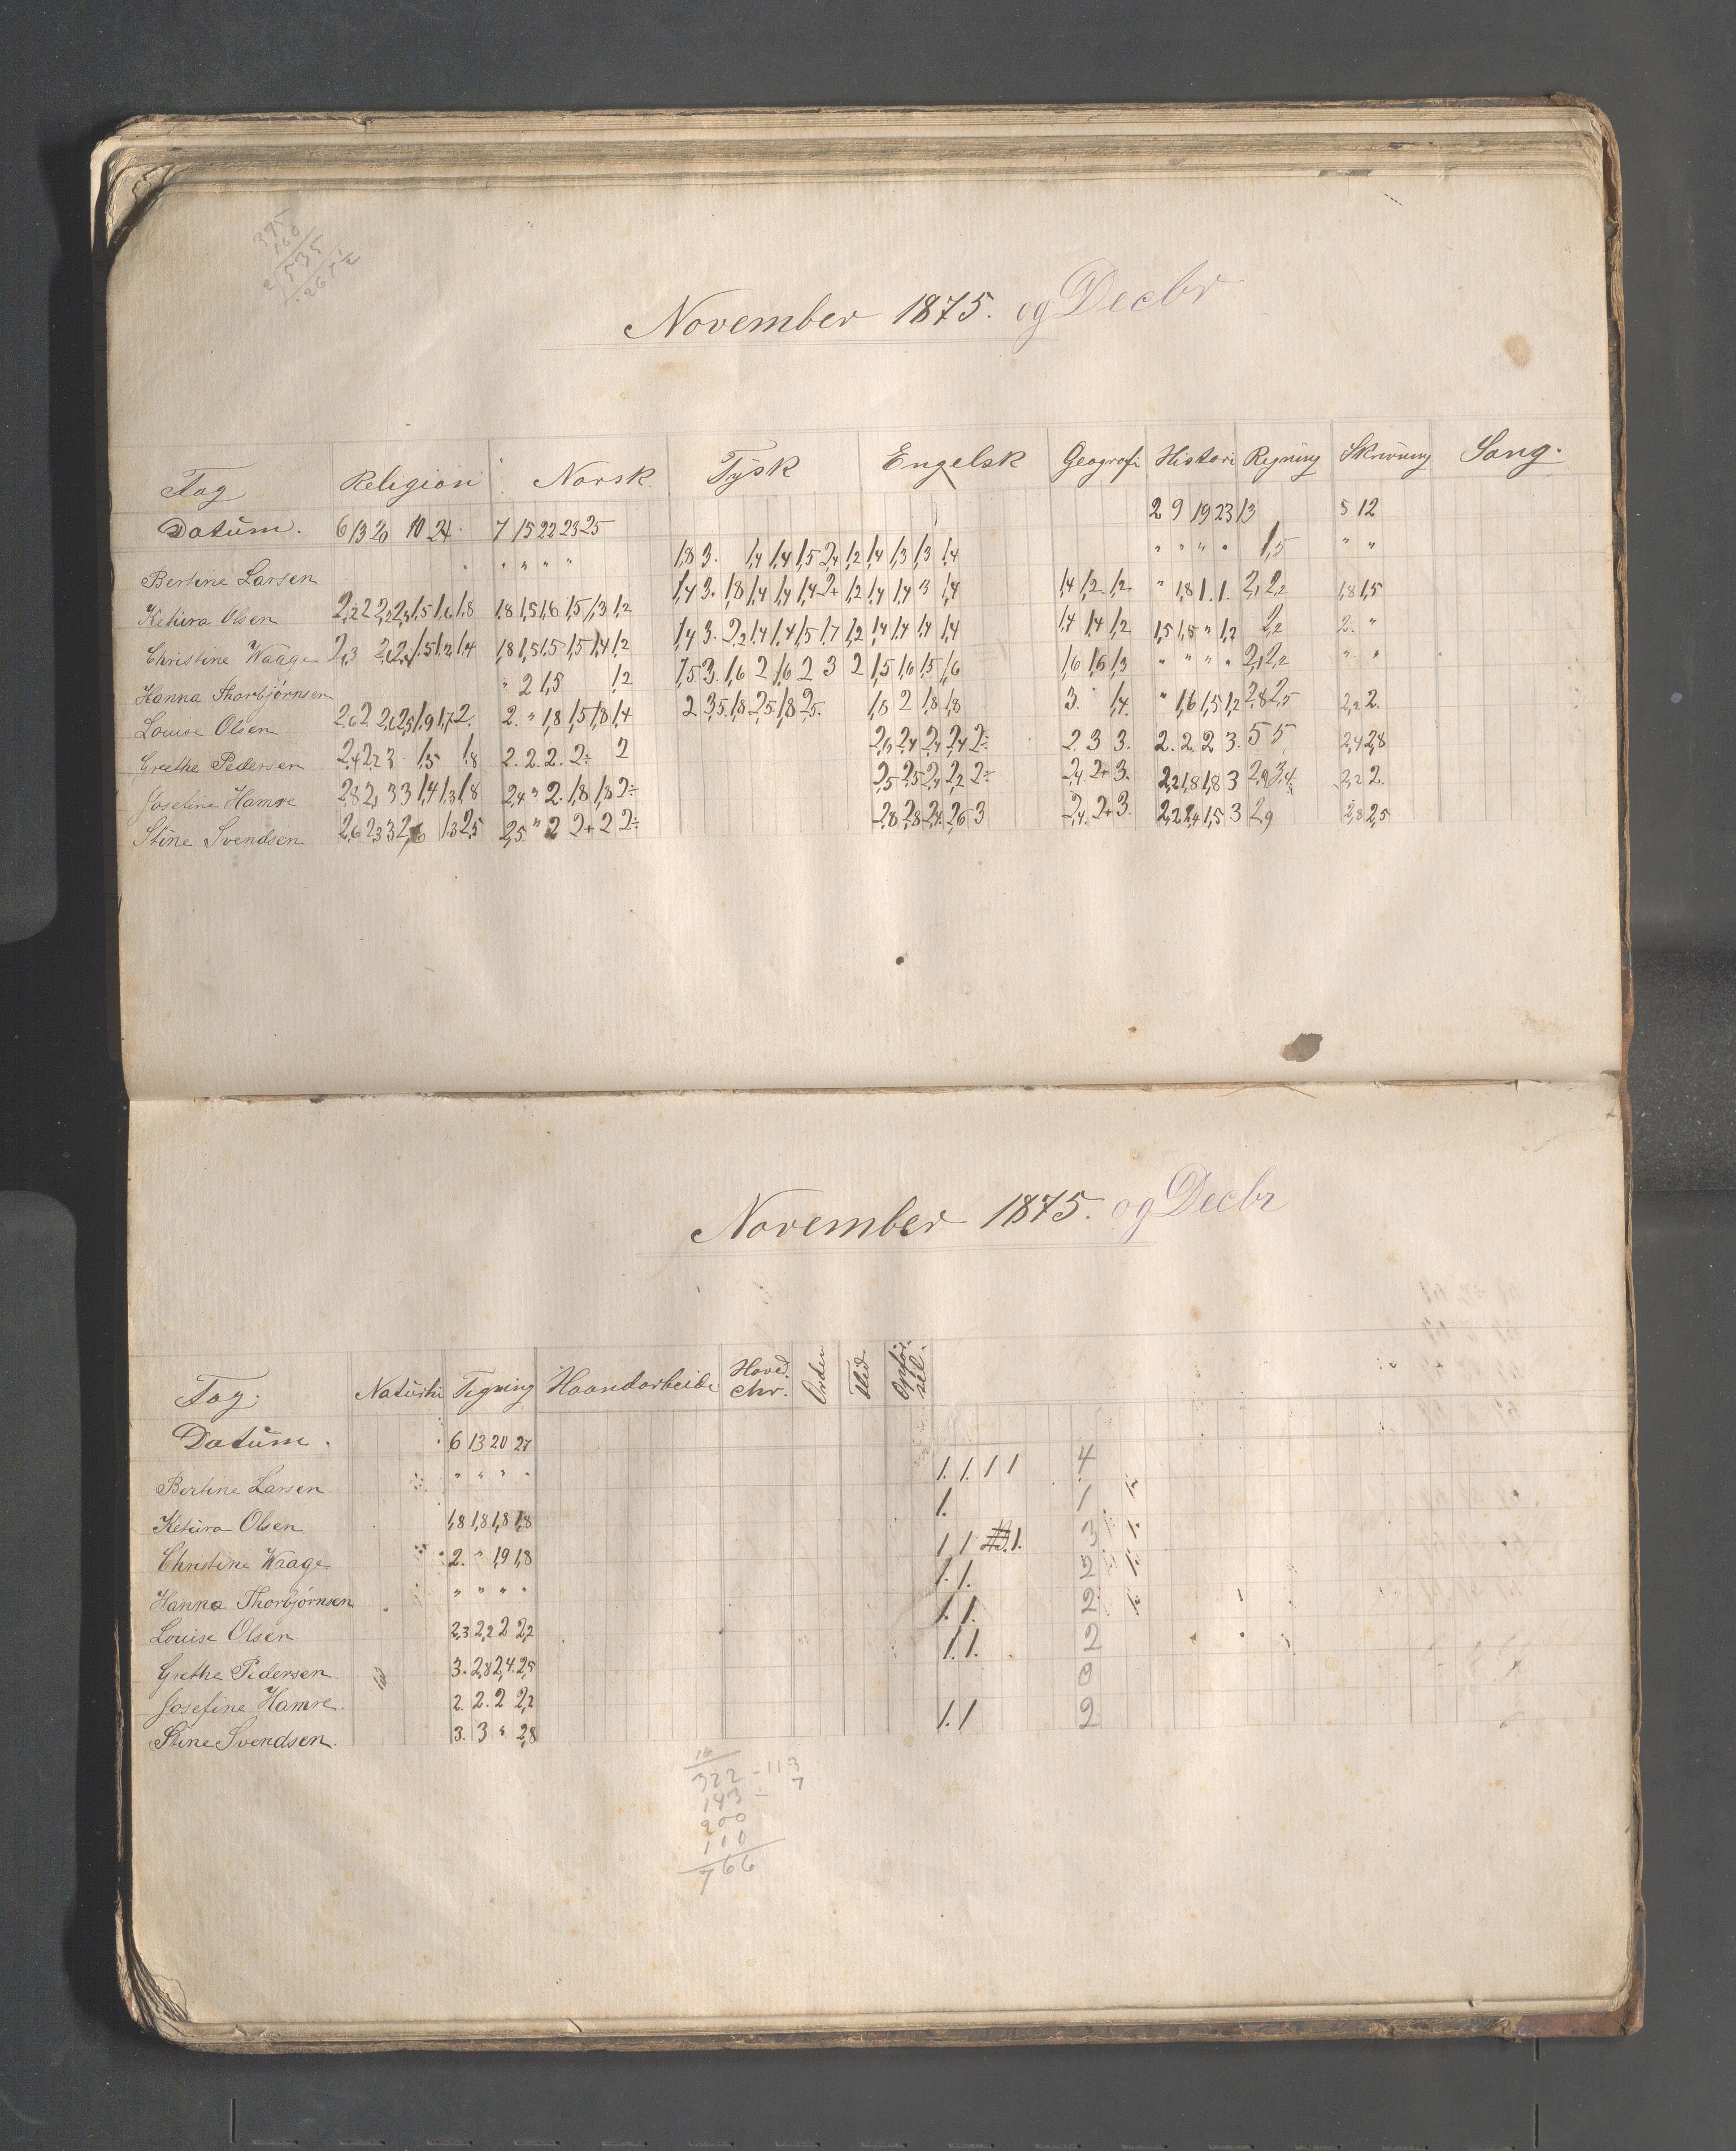 375
160
2/535
267 1/2
November 1875. og Decbr
Fag Religion Norsk. Tysk Engelsk Geografi Histori Regning Skrivning Sang.
Datum. 6 13 20 10 24. 7 15 22 23 25 2 9 19 23 13 5 12
Bertine Larsen " " " " 1,8 3. 1,4 1,4 1,5 2,4 1,2 1,4 1,3 1,3 1,4 " " " " 1,5 " "
Ketura Olsen 2,2 2 2,2 2,3 1,5 1,6 1,8 1,8 1,5 1,6 1,5 1,3 1,2 1,4 3. 1,8 1,4 1,4 1,4 2+ 1,2 1,4 1,4 3 1,4 1,4 1,2 1,2 " 1,8 1. 1. 2,1 2,2 1,8 1,5
Christine Waage 2,3 2,2 2,4 1,5 1,2 1,4 1,8 1,5 1,5 1,5 1,4 1,2 1,4 3. 2,2 1,4 1,4 1,5 1,7 1,2 1,4 1,4 1,4 1,4 1,4 1,4 1,2 1,5 1,8 " 1,2 2,2 2. "
Hanna Thorbjørnsen " 2 1,5 1,2 1,5 3. 1,6 2 1,6 2 3 2 1,5 1,6 1,5 1,6 1,6 1,6 1,3 " " " " 2,1 2,2 " "
Louise Olsen 2,6 2 2,6 2,5 1,9 1,7 2. 2. " 1,8 1,5 1,8 1,4 2 3,5 1,8 2,5 1,8 2,5. 1,8 2 1,8 1,8 3. 1,4. " 1,6 1,5 1,2 2,8 2,5 2,2 2.
Grethe Pedersen 2,4 2,2 3 1,5 1,8 2. 2. 2. 2÷ 2 2,6 2,4 2,4 2,4 2÷ 2. 3 3. 2. 2. 2 3. 5 5 2,4 2,8
Josefine Hamre 2,8 2,1 3 3 1,4 1,3 1,8 2,4 " 2. 1,8 1,8 2÷ 2,5 2,5 2,4 2,2 2÷ 2,4 2+ 3. 2,2 1,8 1,8 3 2,9 3,4 2,2 2.
Stine Svendsen 2,6 2,3 3 2,6 1,3 2,5 2,5 " 2 2+ 2 2÷ 2,8 2,8 2,4 2,6 3 2,4. 2+ 3. 2,2 2,4 1,5 3 2,9 2,8 2,5
November 1875. og Decbr
Fag. Naturhi Tegning Haandarbeide Hoved chr. Orden Flid Opførsel.
Datum. 6 13 20 27
Bertine Larsen " " " " 1. 1. 1 1 4
Ketura Olsen 1,8 1,8 1,8 1,8 1. 1
Christine Waage 2. " 1,9 1,8 1 1 1. 3
Hanna Thorbjørnsen " " " " 1. 1. 2
Louise Olsen 2,3 2,2 2 2,2 1. 1. 2
Grethe Pedersen 3. 2,8 2,4. 2,5 1. 1. 2
Josefine Hamre. 2. 2. 2 2,2 0
Stine Svendsen. 3. 3 " 2,8 1. 1 2
322 - 113
143 - 7
200
100
766